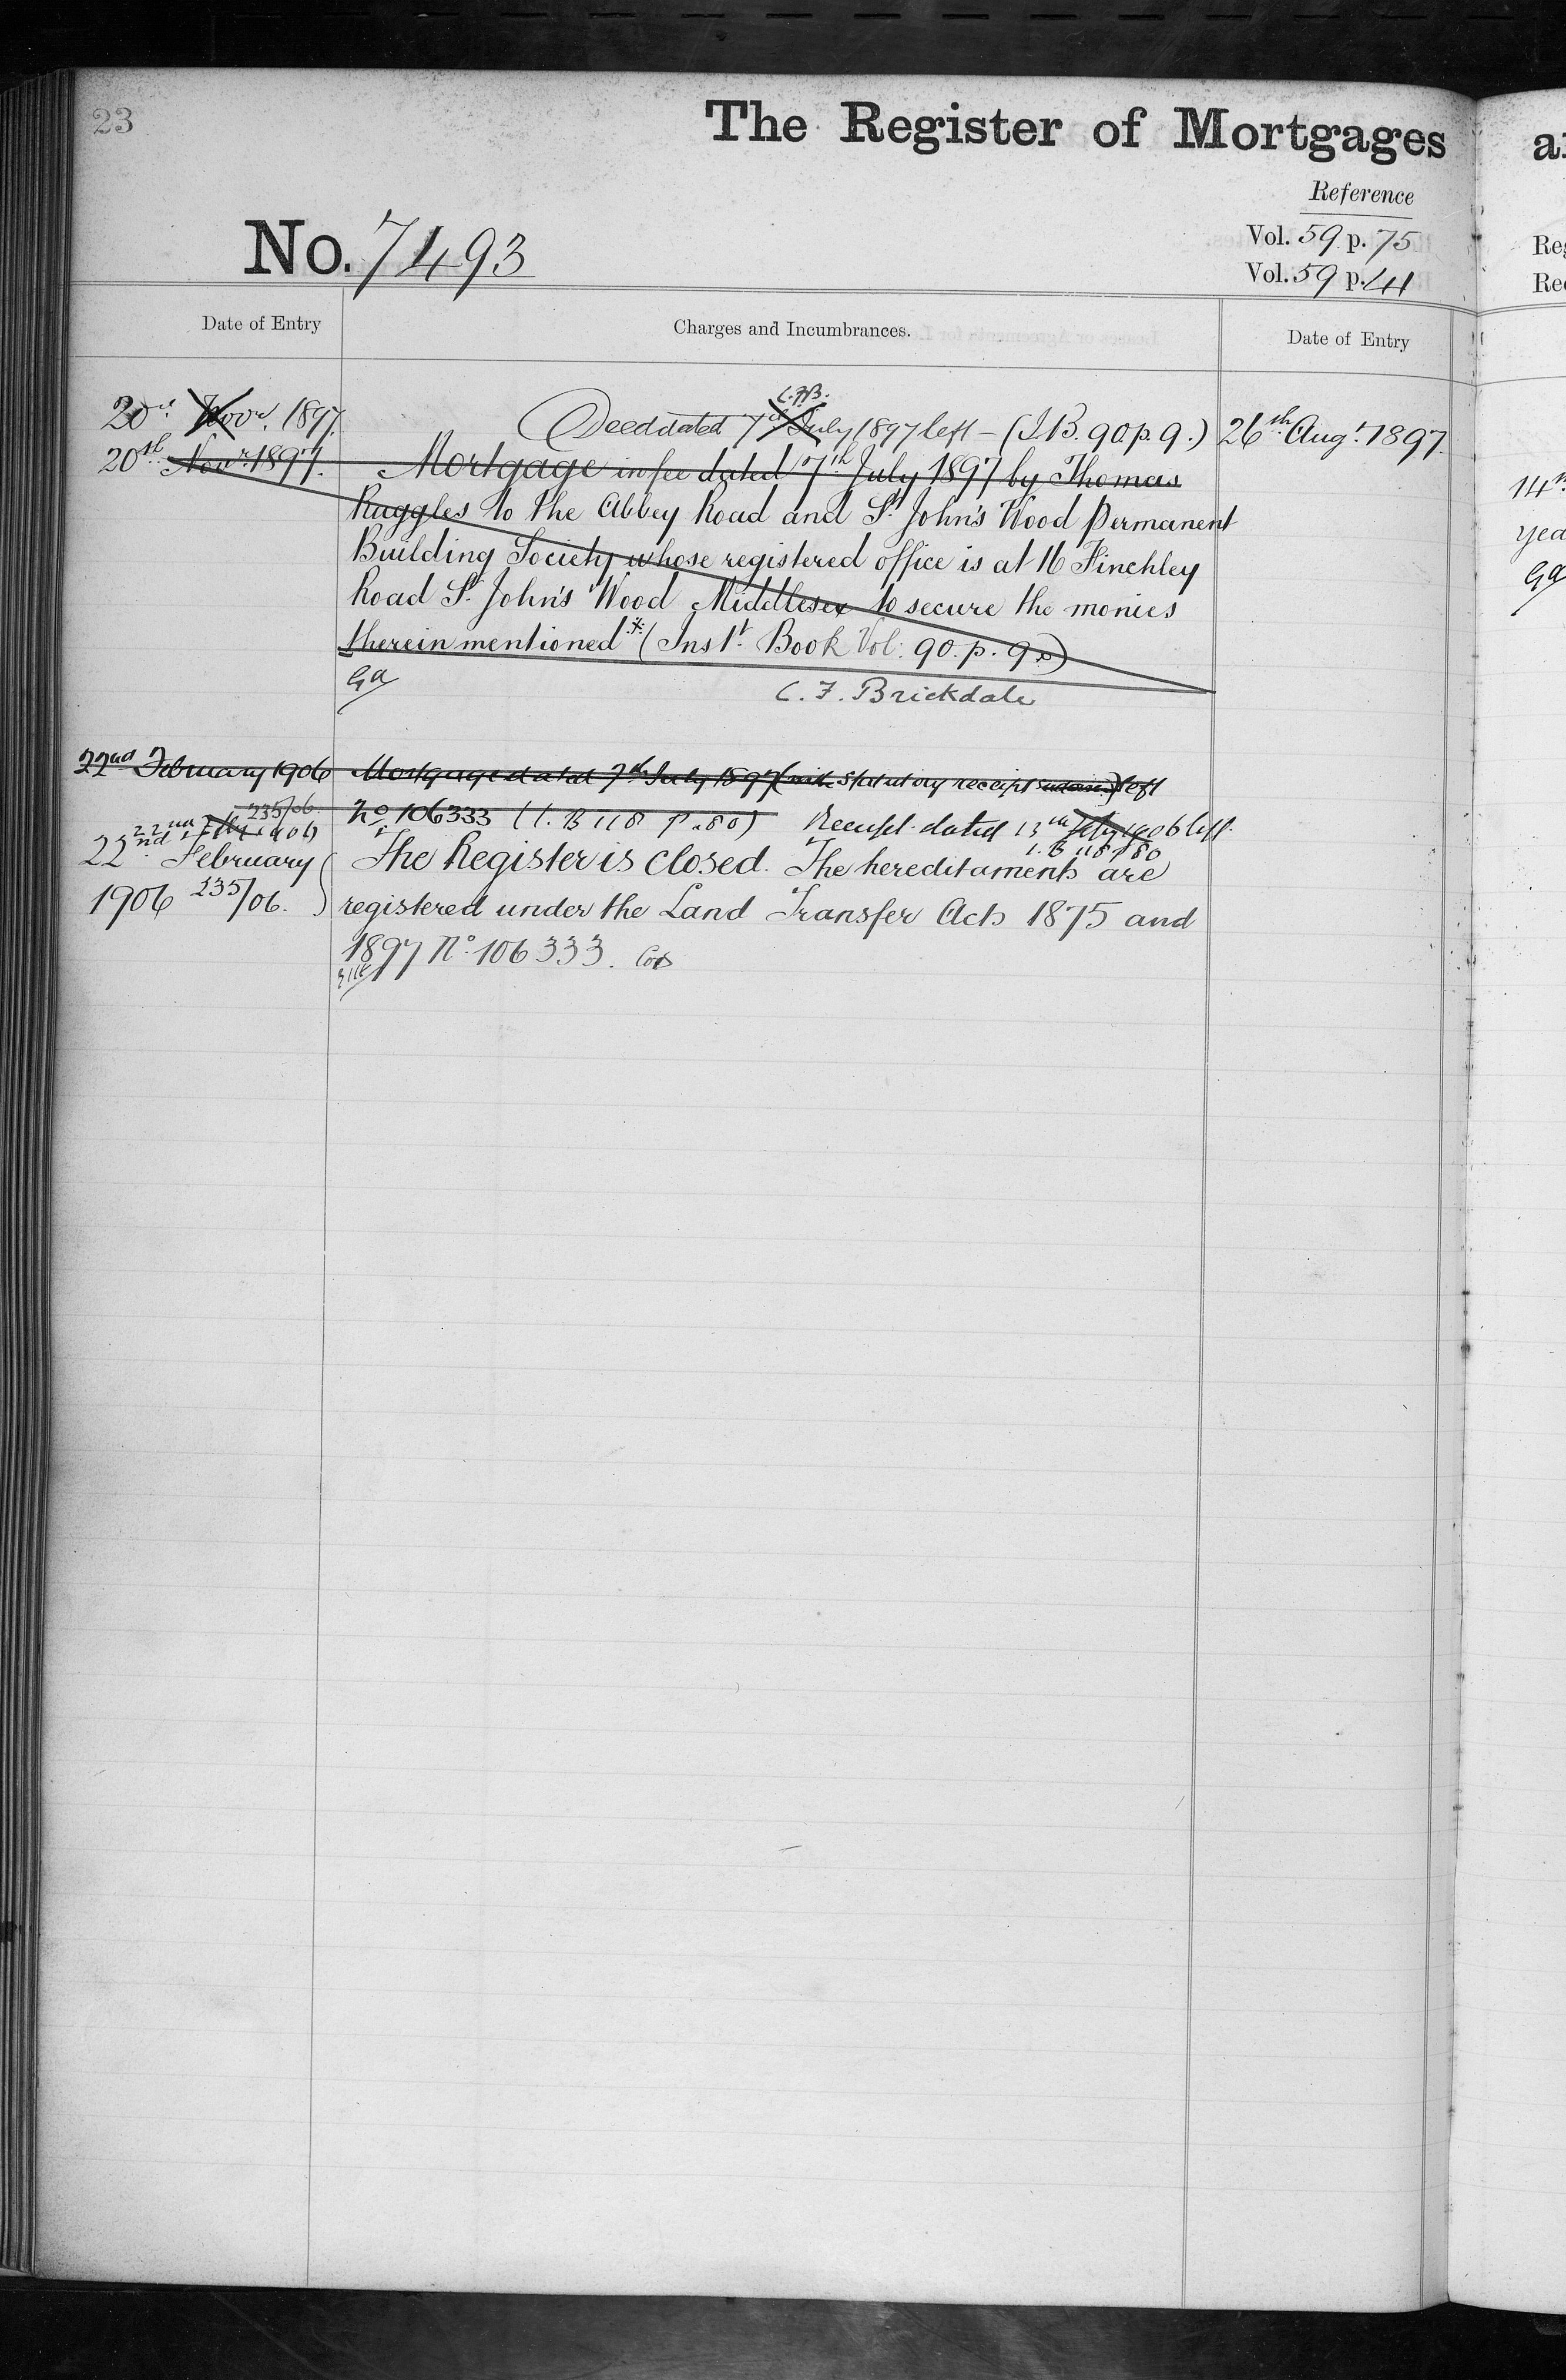 23
The Register of Mortgages
Reference
No. 7493
Vol. 59 p. 75
Vol. 59 p. 41
Date of Entry
Charges and Incumbrances.
Date of Entry
C.F.B.
20th Novr. 1897.
Deed dated 7th July 1897 left - (I.B. 90 p. 9.)
26th Augt. 1897.
20th Novr. 1897.
Mortgage in fee dated 7th July 1897 by Thomas
Ruggles to the Abbey Road and St. John's Wood Permanent
Building Society whose registered office is at 16 Finchley
Road St. John's Wood Middlesex to secure the monies
therein mentioned (Inst. Book Vol: 90. p. 9.)
Ga
C. F. Brickdale
22nd February 1906
Mortgage dated 7th July 1897 (with statutory receipt) left
235/06
No. 106333 (I. B 118 p. 80)
22nd Feby 1906
Receipt dated 13th Feby 1906 left.
I. B 118 p 80
22nd February
The Register is closed. The hereditaments are
1906 235/06.
registered under the Land Transfer Acts 1875 and
1897 No. 106333.
a
Reg
Re
14th
yea
Ga